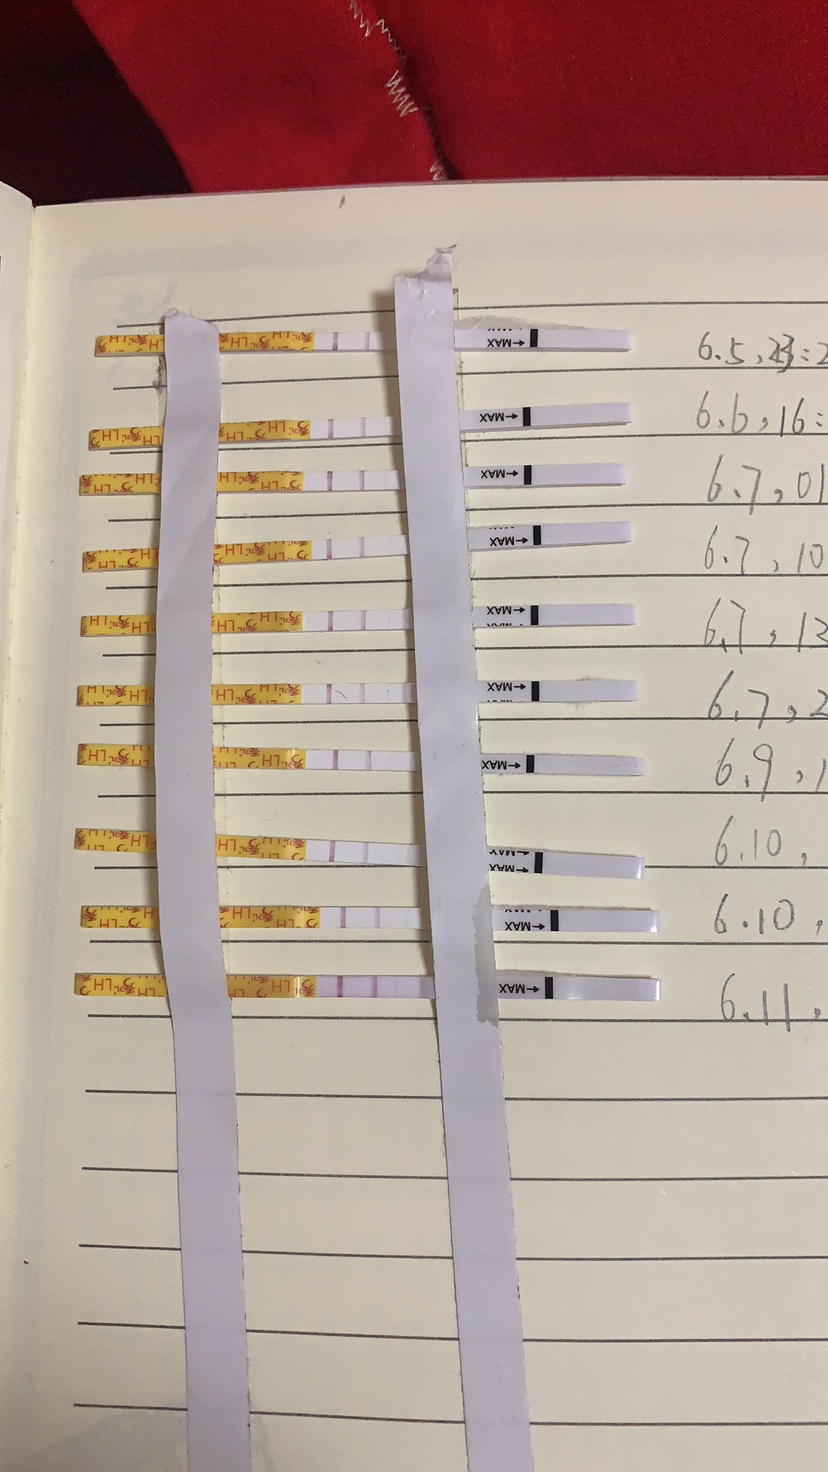 LH LH MAX 6.5,23:2
LH LH MAX 6.6,16:
LH LH MAX 6.7,01
LH LH MAX 6.7,10
LH LH MAX 6.7,12
LH LH MAX 6.7,2
LH LH MAX 6.9,1
LH LH MAX 6.10,
LH LH MAX 6.10,
LH LH MAX 6.11,